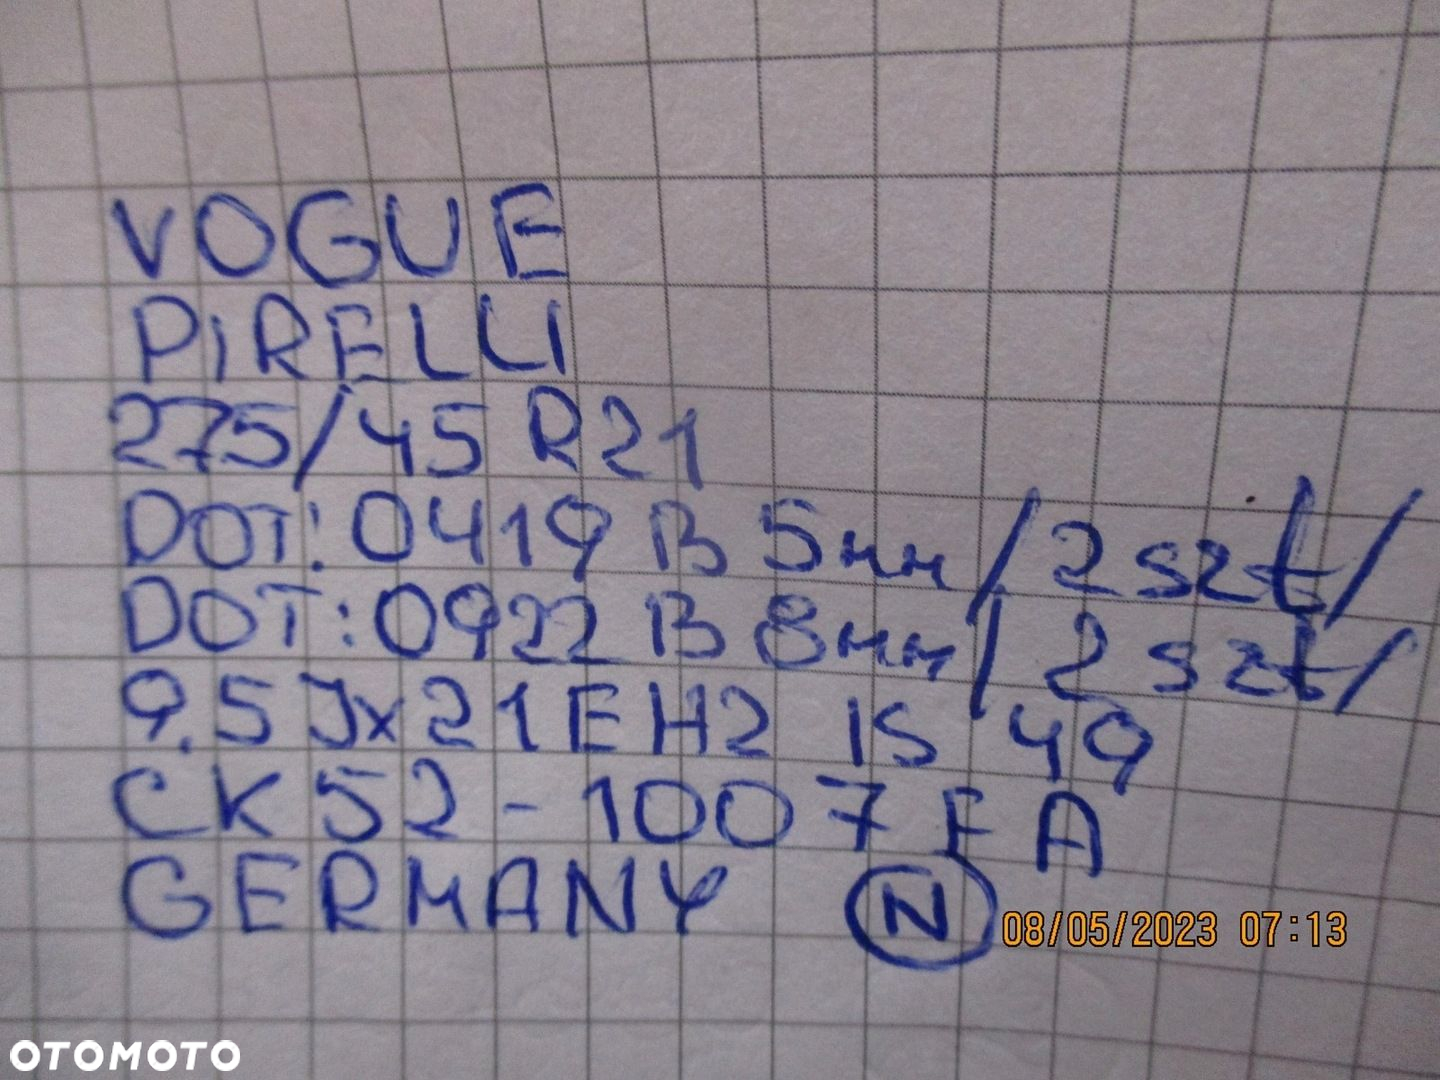 VOGUE
PiRELLI
275/45 R21
DOT: 0419 B 5мм /2szt/
DOT: 0922 B 8мм /2szt/
9.5Jx21EH2 IS 49
CK52-1007EA
GERMANY N
08/05/2023 07:13
OTOMOTO